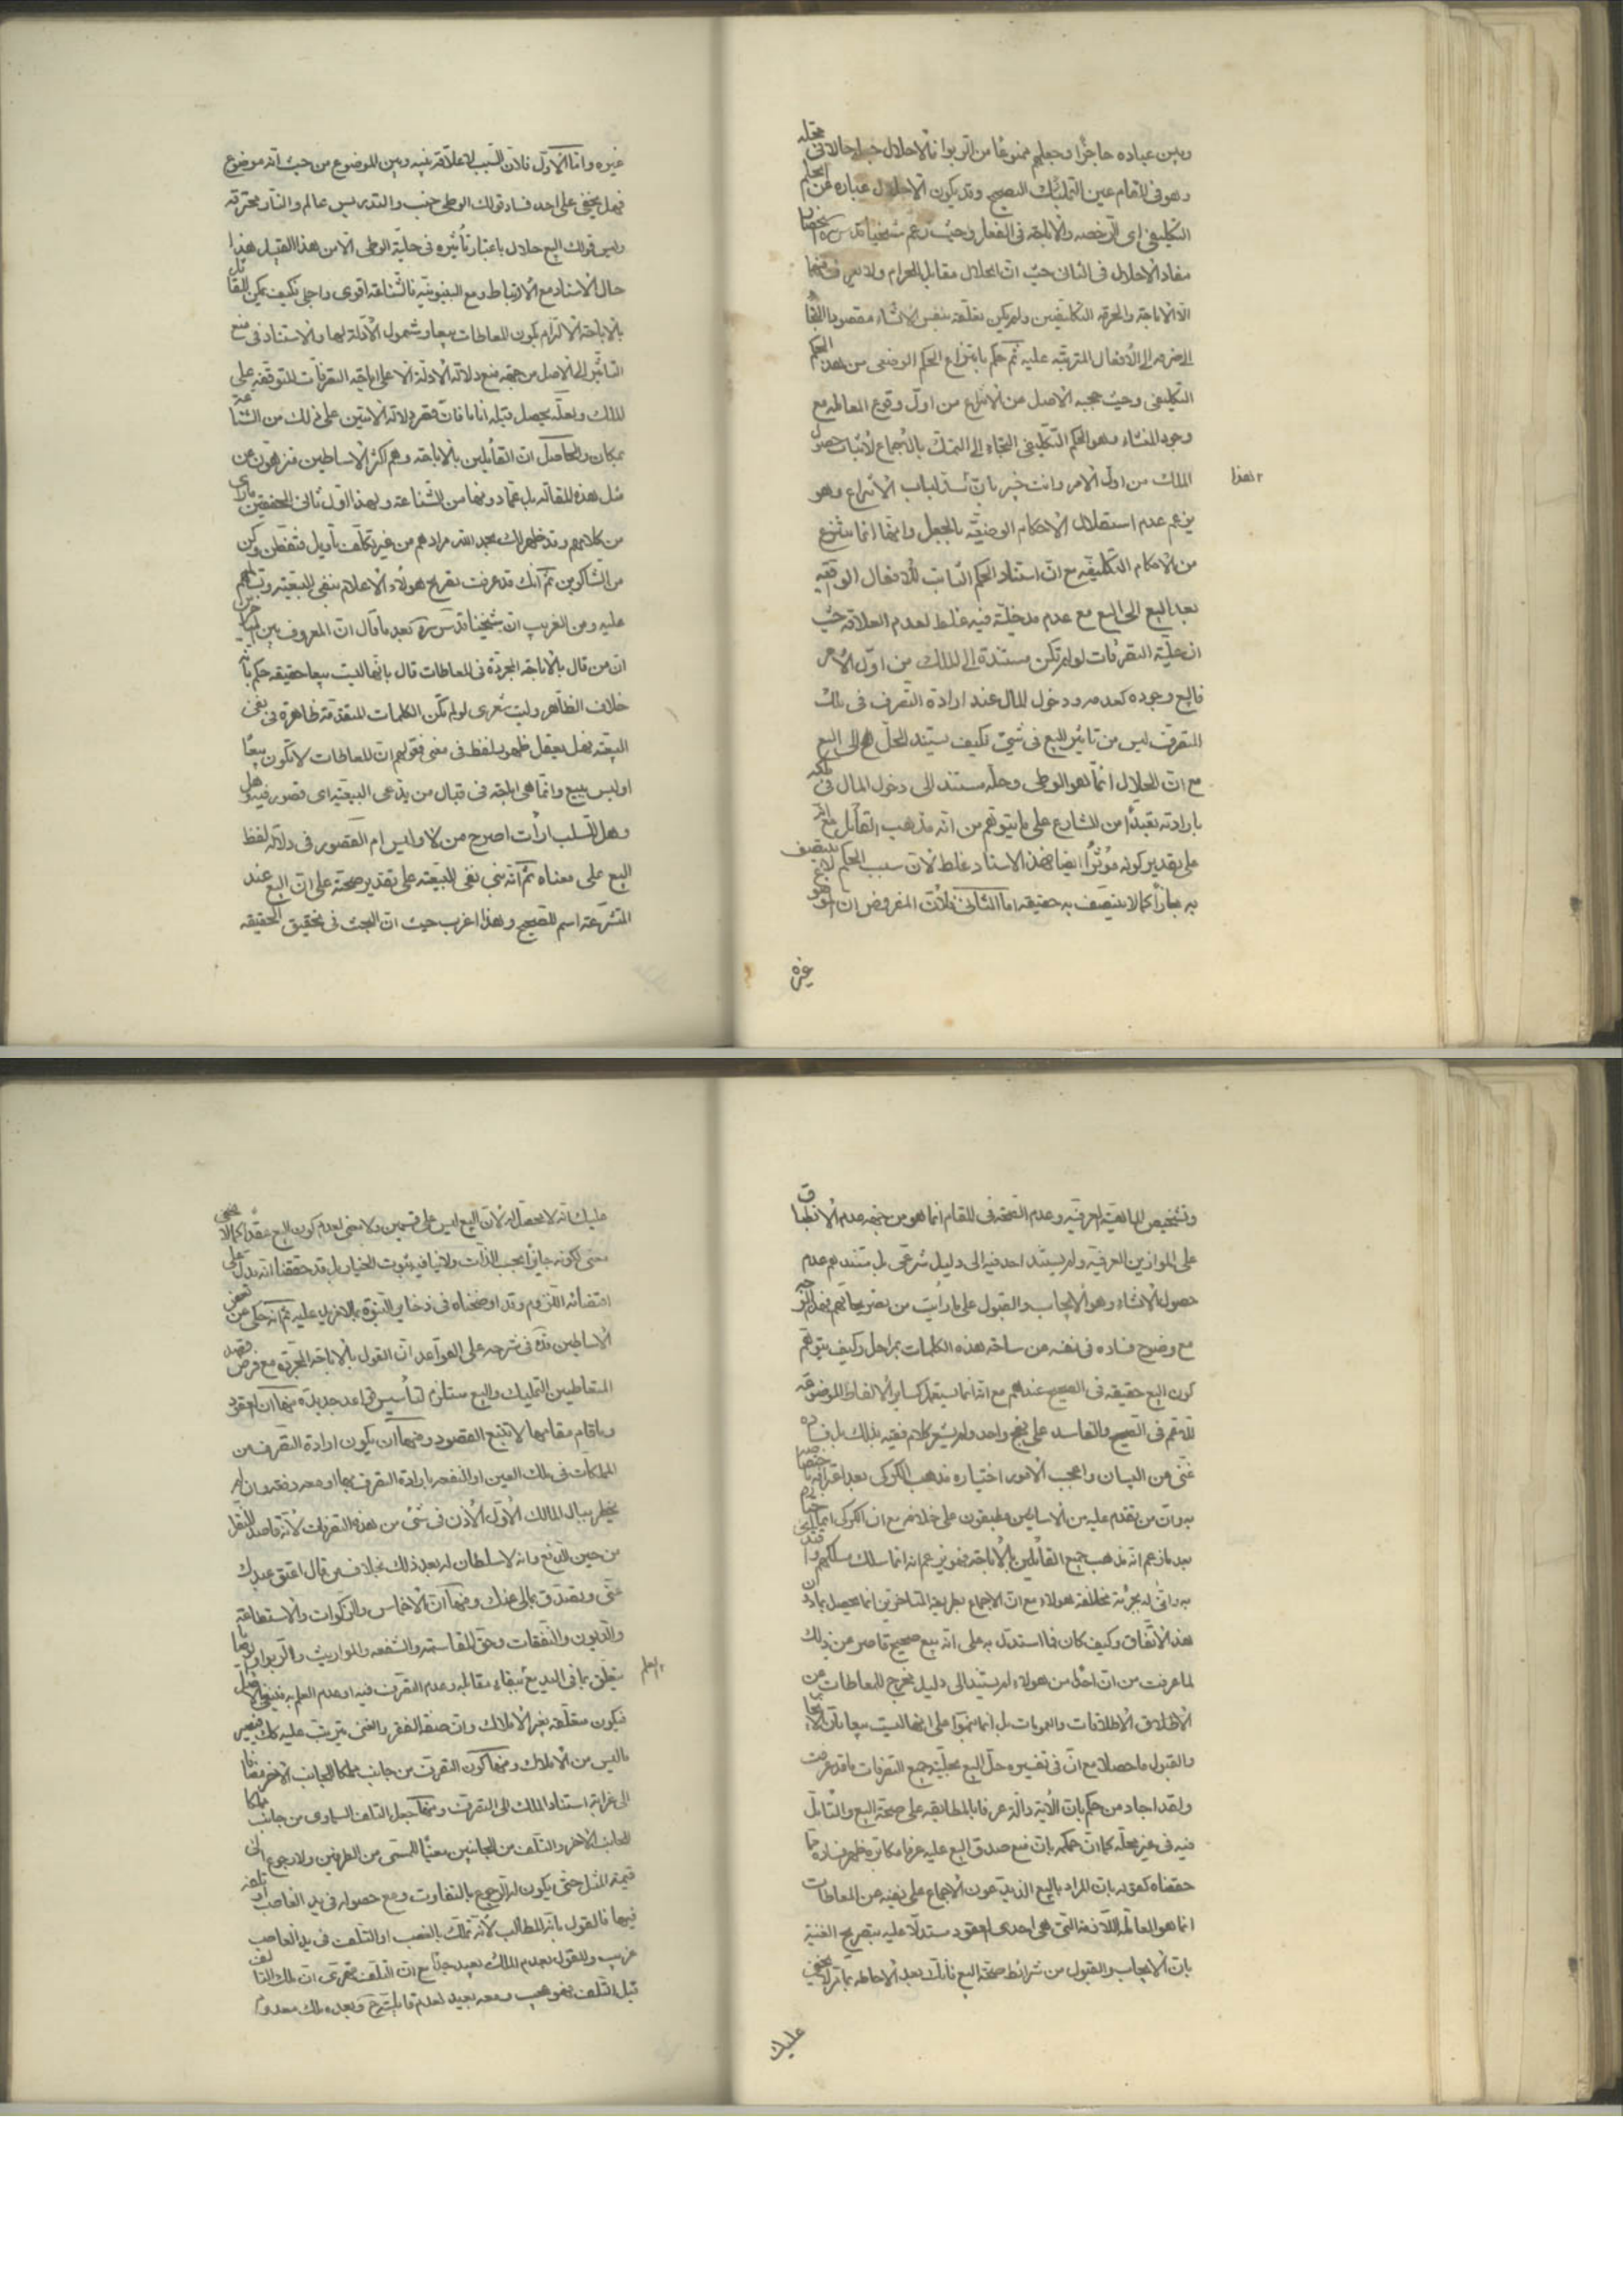 وبين عباده حاجزا وجعلهم ممنوعا من الربوا فالاحلال حالا فى محله
وهو فى المقام عين التمليك الصحيح وقد يكون الاحلال عبارة عن الحكم
التكليفى اى الرخصه والاباحة فى الفعل وحيث زعم شيخنا قدس سره انحصار
مفاد الاحلال فى الثانى حيث ان الحلال مقابل الحرام ولا يعرف منهما
الا الاباحة والحرمة التكليفيين ولم يكن تعلقه بنفس الانشاء مقصودا
الى الافعال المترتبة عليه ثم حكم بانتزاع الحكم الوضعى من هذا الحكم
التكليفى وحيث عجبه الاصل عن الانتزاع من اول وقوع المعاملة مع
وجود المنشاء وهو الحكم التكليفى التجاء الى التمسك بالاجماع لاثبات حصول
الملك من اول الامر وانت خبير بان سد لباب الانتزاع وهو
هذا
يزعم عدم استقلال الاحكام الوضعية بالجعل وانها انما تنتزع
من الاحكام التكليفية مع ان استناد الحكم الثابت للافعال الواقعة
بعد البيع الى البيع مع عدم مدخلية فيه غلط لعدم العلاقة حيث
ان حلية التصرفات لو لم تكن مستندة الى الملك من اول الامر
فالبيع وجوده كعدمه ودخول المال عند ارادة التصرف فى ملك
المتصرف ليس من تاثير البيع فى شئ فكيف يستند الحل الى البيع
مع ان الحلال انما هو الوطى وحله مستند الى دخول المال فى ملكه
بارادته تعبدا من الشارع على ما يتوهم من انه مذهب القائل مع انه
على تقدير كونه مؤثرا ايضا فهذا الاسناد غلط لان سبب الحكم لا يتصف
به مجازا كما لا يتصف به حقيقة اما الثانى فلان المفروض ان
غيره
غيره واما الاول فلان السبب لا علاقة بينه وبين الموضوع من حيث انه موضوع
فهل يخفى على احد فساد قولك الوطى خبيث والتدريس عالم والنار محترقة
وليس قولك البيع حلال باعتبار تأثيره فى حلية الوطى الا من هذا القبيل هذا
حال الاسناد مع الارتباط ومع البينونية فالشناعة اقوى واجلى فكيف يمكن للقائل
بالاباحة الالتزام بكون المعاطات بيعا وشمول الادلة لها والاستناد فى منع
التاثير الى الاصل من جهة منع دلالة الادلة الا على اباحة التصرفات المتوقفة على
الملك ولعله يحصل قبله اناما فان قصر دلالة الايتين على ذلك من الشناعة
بمكان والحاصل ان القائلين بالاباحة وهم اكثر الاساطين منزهون عن
مثل هذه المقالة بل عما دونها من الشناعة وبهذا اول ثانى المحققين ما راى
من كلامهم وقد ظهر لك بحمد الله مرادهم من غير تكلف تأويل فتفطن وكن
من الشاكرين ثم انك قد عرفت تصريح هؤلاء الاعلام بنفى البيعية وتسالمهم
عليه ومن الغريب ان شيخنا قدس سره بعد ما قال ان المعروف بين المتاخرين
ان من قال بالاباحة المجردة فى المعاطات قال بانها ليست بيعا حقيقة حكم بانه
خلاف الظاهر وليت شعرى لو لم تكن الكلمات المتقدمة ظاهرة فى نفى
البيعية فهل يعقل ظهور لفظ فى معنى فقولهم ان المعاطات لا تكون بيعا
او ليس ببيع وانما هى اباحة فى قبال من يدعى البيعية اى قصور فيه وهل
وهل للسلب ادات اصرح من لا وليس ام القصور فى دلالة لفظ
البيع على معناه ثم انه بنى نفى البيعية على تقدير صحته على ان البيع عند
المتشرعة اسم للصحيح وهذا اغرب حيث ان البحث فى تحقيق الحقيقة
وتشخيص الماهية العرفية وعدم الصحة فى المقام انما هو من جهة عدم الانطباق
على الموازين العرفية ولم يستند احد فيه الى دليل شرعى بل مستندهم عدم
حصول الانشاء وهو الايجاب والقبول على ما رايت من تصريحاتهم فهذا
مع وضوح فساده فى نفسه عن ساحة هذه الكلمات بمراحل وكيف يتوهم
كون البيع حقيقة فى الصحيح عندهم مع انه انما يستعمل كساير الالفاظ الموضوعة
للاعم فى الصحيح والفاسد على نهج واحد ولم يشعر كلام فقيه بذلك بل فساده
غنى من البيان واعجب الامور اختياره مذهب الكركى بعد اعترافه باختصاصه
به وان من تقدم عليه من الاساطين مطبقون على خلافه مع ان الكركى انما
بعد ما زعم انه مذهب جميع القائلين بالاباحة فهو يزعم انه انما سلك مسلكهم
به وانى له بجرئة مخالفة هؤلاء مع ان الاجماع بطريقة المتاخرين انما يحصل بمادون
هذا الاتفاق وكيف كان فما استدل به على انه بيع صحيح قاصر عن ذلك
لما عرفت من ان احدا من هؤلاء لم يستند الى دليل مخرج للمعاطات عن
الاطلاق الاطلاقات والعمومات بل انما بنوا على انها ليست بيعا بان الايجاب
والقبول ما حصلا مع ان فى تفسيره حل البيع بحلية جميع التصرفات ما قد عرفت
ولقد اجاد من حكم بان الاية دالة عرفا بالمطابقة على صحة البيع والتامل
فيه فى غير محله كما ان حكمه بان منع صدق البيع عليه عرفا مكابرة ظهر فساده مما
حققناه كقوله بان المراد بالبيع الذى يدعون الاجماع على نفيه عن المعاطات
انما هو المعاملة اللازمة التى هى احدى العقود مستدلا عليه بتصريح الغنية
بان الايجاب والقبول من شرائط صحة البيع فانك بعد الاحاطة بما مر لا يخفى
عليك
عليك انه لا محصل له لان البيع ليس على قسمين ولا معنى لعدم كون البيع عقدا كما لا يخفى
معنى لكونه جايزا بحسب الذات ولا ينافيه ثبوت الخيار بل قد حققنا انه يدل على
اقتضائه اللزوم وقد اوضحناه فى ذخاير النبوة بما لا مزيد عليه ثم انه حكى عن بعض
الاساطين انه فى شرحه على القواعد ان القول بالاباحة المجردة مع فرض قصد
المتعاطيين التمليك والبيع مستلزم لتأسيس قواعد جديدة منها ان العقود
وما قام مقامها لا تتبع القصود ومنها ان يكون ارادة التصرف من
المملكات فى ملك العين او المنفعة بارادة التصرف بها او معه دفعة وان لم
يخطر ببال المالك الاول الاذن فى شئ من هذه التصرفات لانه قاصد للنقل
من حين الدفع وانه لا سلطان له بعد ذلك بخلاف من قال اعتق عبدك
عنى وتصدق بمالى عنك ومنها ان الاخماس والزكوات والاستطاعة
والديون والنفقات وحق المقاسمة والشفعة والمواريث والربوا
يتعلق بما فى اليد مع بقاء مقابله وعدم التصرف فيه او عدم العلم به
العلم
فيكون متعلقة بغير الاملاك وان صفة الفقر والغنى يترتب عليه كك فيصير
ما ليس من الاملاك ومنها كون التصرف من جانب مملكا للجانب الاخر مضافا
الى غرابة استناد الملك الى التصرف ومنها جعل التلف السماوى من جانب مملكا
للجانب الاخر والتلف من الجانبين معينا للمسمى من الطرفين ولا رجوع الى
قيمة المثل حتى يكون له الرجوع بالتفاوت ومع حصوله فى يد الغاصب او تلفه
فيها فالقول بانه المطالب لانه تملك بالغصب او التلف فى يد الغاصب
غريب والقول بعدم الملك بعيد جدا مع ان التلف القهرى ان ملك التالف
قبل التلف فهو عجيب ومعه بعيد لعدم قابليته ح وبعده ملك معدوم